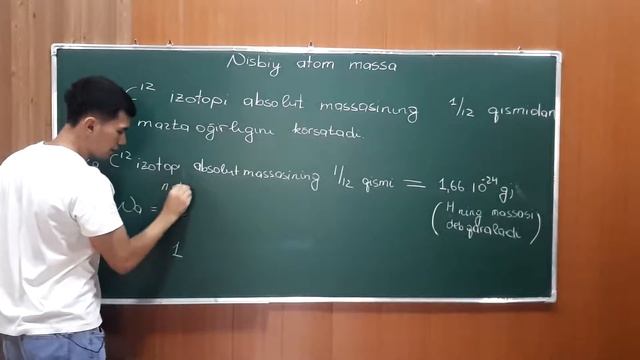 Nisbiy atom massa
C¹² izotopi absolut massasining 1/12 qismidan
marta og'irligini ko'rsatadi.
C¹² izotopi absolut massasining 1/12 qismi = 1,66 10⁻²⁴ g;
(H ning massasi
deb qaraladi)
Na =
1